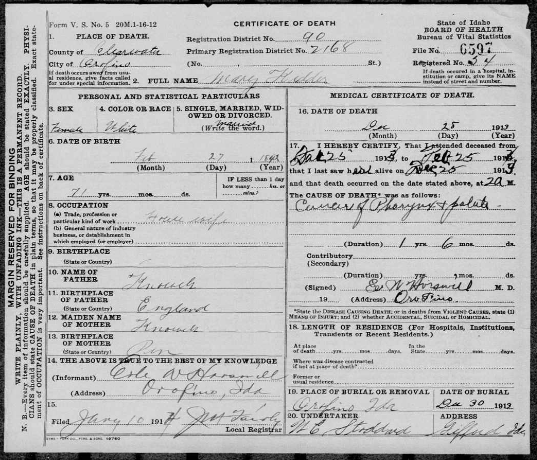 Form V. S. No. 5 20M.1-16-12
CERTIFICATE OF DEATH
State of Idaho
BOARD OF HEALTH
Bureau of Vital Statistics
1. PLACE OF DEATH.
County of Clearwater
City of Orofino
If death occurs away from usual residence, give facts called for under special information.
Registration District No. 90
Primary Registration District No. 2168
(No. St.)
File No. 6597
Registered No. 24
If death occurred in a hospital, institution or camp, give its NAME instead of street and number.
2. FULL NAME Mary
PERSONAL AND STATISTICAL PARTICULARS
3. SEX
Female
4. COLOR OR RACE
White
5. SINGLE, MARRIED, WIDOWED OR DIVORCED.
(Write the word.)
6. DATE OF BIRTH
Feb 27
(Month) (Day) (Year)
7. AGE
71 yrs. mos. ds.
IF LESS than 1 day
how many hrs. or
mins.?
8. OCCUPATION
(a) Trade, profession or particular kind of work House wife
(b) General nature of industry business, or establishment in which employed (or employer)
9. BIRTHPLACE
(State or Country)
10. NAME OF FATHER
11. BIRTHPLACE OF FATHER
(State or Country)
England
12. MAIDEN NAME OF MOTHER
13. BIRTHPLACE OF MOTHER
(State or Country)
14. THE ABOVE IS TRUE TO THE BEST OF MY KNOWLEDGE
(Informant)
(Address) Orofino, Ida
15.
Filed Jany 10 191
Local Registrar
MEDICAL CERTIFICATE OF DEATH.
16. DATE OF DEATH
Dec 25 1913
(Month) (Day) (Year)
17. I HEREBY CERTIFY, That I attended deceased from
25 1913, to 25 1913
that I last saw h alive on Dec 25 1913
and that death occurred on the date stated above, at 2 a M.
The CAUSE OF DEATH was as follows:
Cancer of Pharynx & palate
(Duration) 1 yrs. 6 mos. ds.
Contributory
(Secondary)
(Duration) yrs. mos. ds.
(Signed) E W Horswill M. D.
19 (Address) Orofino
*State the DISEASE CAUSING DEATH, or in deaths from VIOLENT CAUSES, state (1) MEANS OF INJURY; and (2) whether ACCIDENTAL, SUICIDAL OR HOMICIDAL.
18. LENGTH OF RESIDENCE (For Hospitals, Institutions, Transients or Recent Residents.)
At place of death yrs. mos. ds. In the State yrs. mos. ds.
Where was disease contracted if not at place of death?
Former or usual residence
19. PLACE OF BURIAL OR REMOVAL
Orofino Ida
DATE OF BURIAL
Dec 30 1913
20. UNDERTAKER
ADDRESS
MARGIN RESERVED FOR BINDING
WRITE PLAINLY WITH UNFADING INK—THIS IS A PERMANENT RECORD.
N. B.—Every item of information should be carefully supplied. AGE should be stated EXACTLY. PHYSICIANS should state CAUSE OF DEATH in plain terms, so that it may be properly classified. Exact statement of OCCUPATION is very important. See instructions on back of certificate.